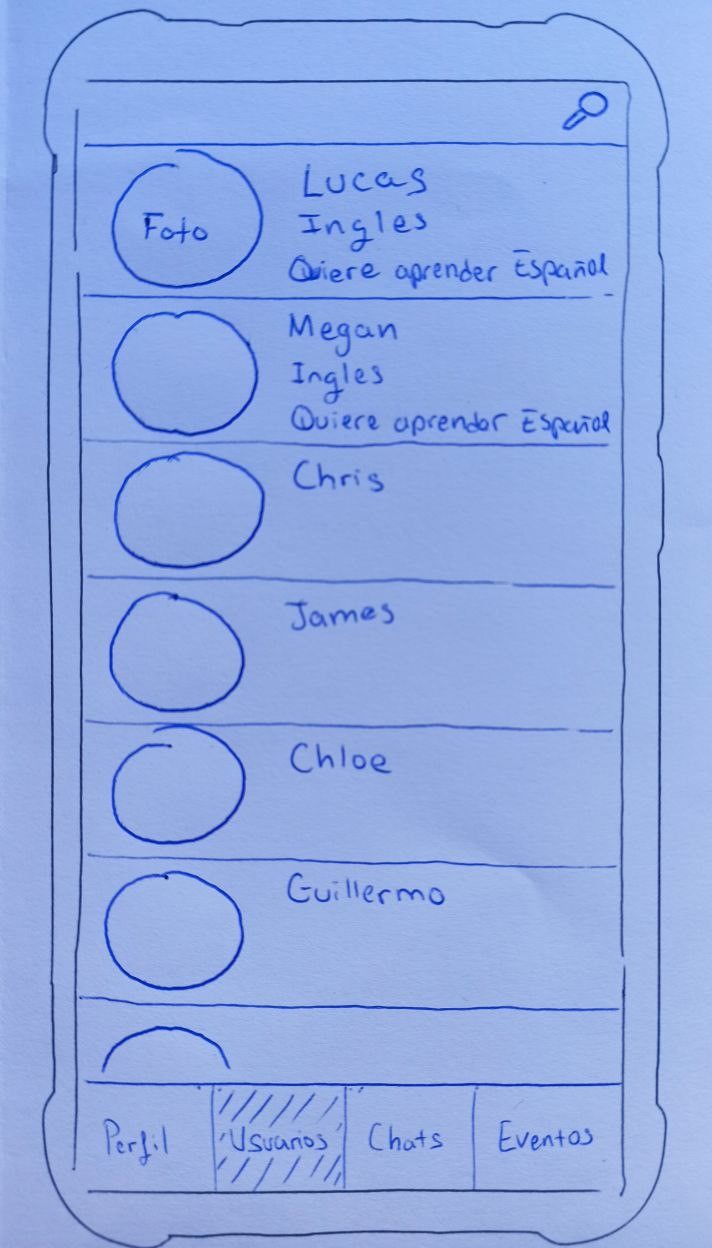 Foto
Lucas
Ingles
Quiere aprender Español
Megan
Ingles
Quiere aprender Español
Chris
James
Chloe
Guillermo
Perfil Usuarios Chats Eventos